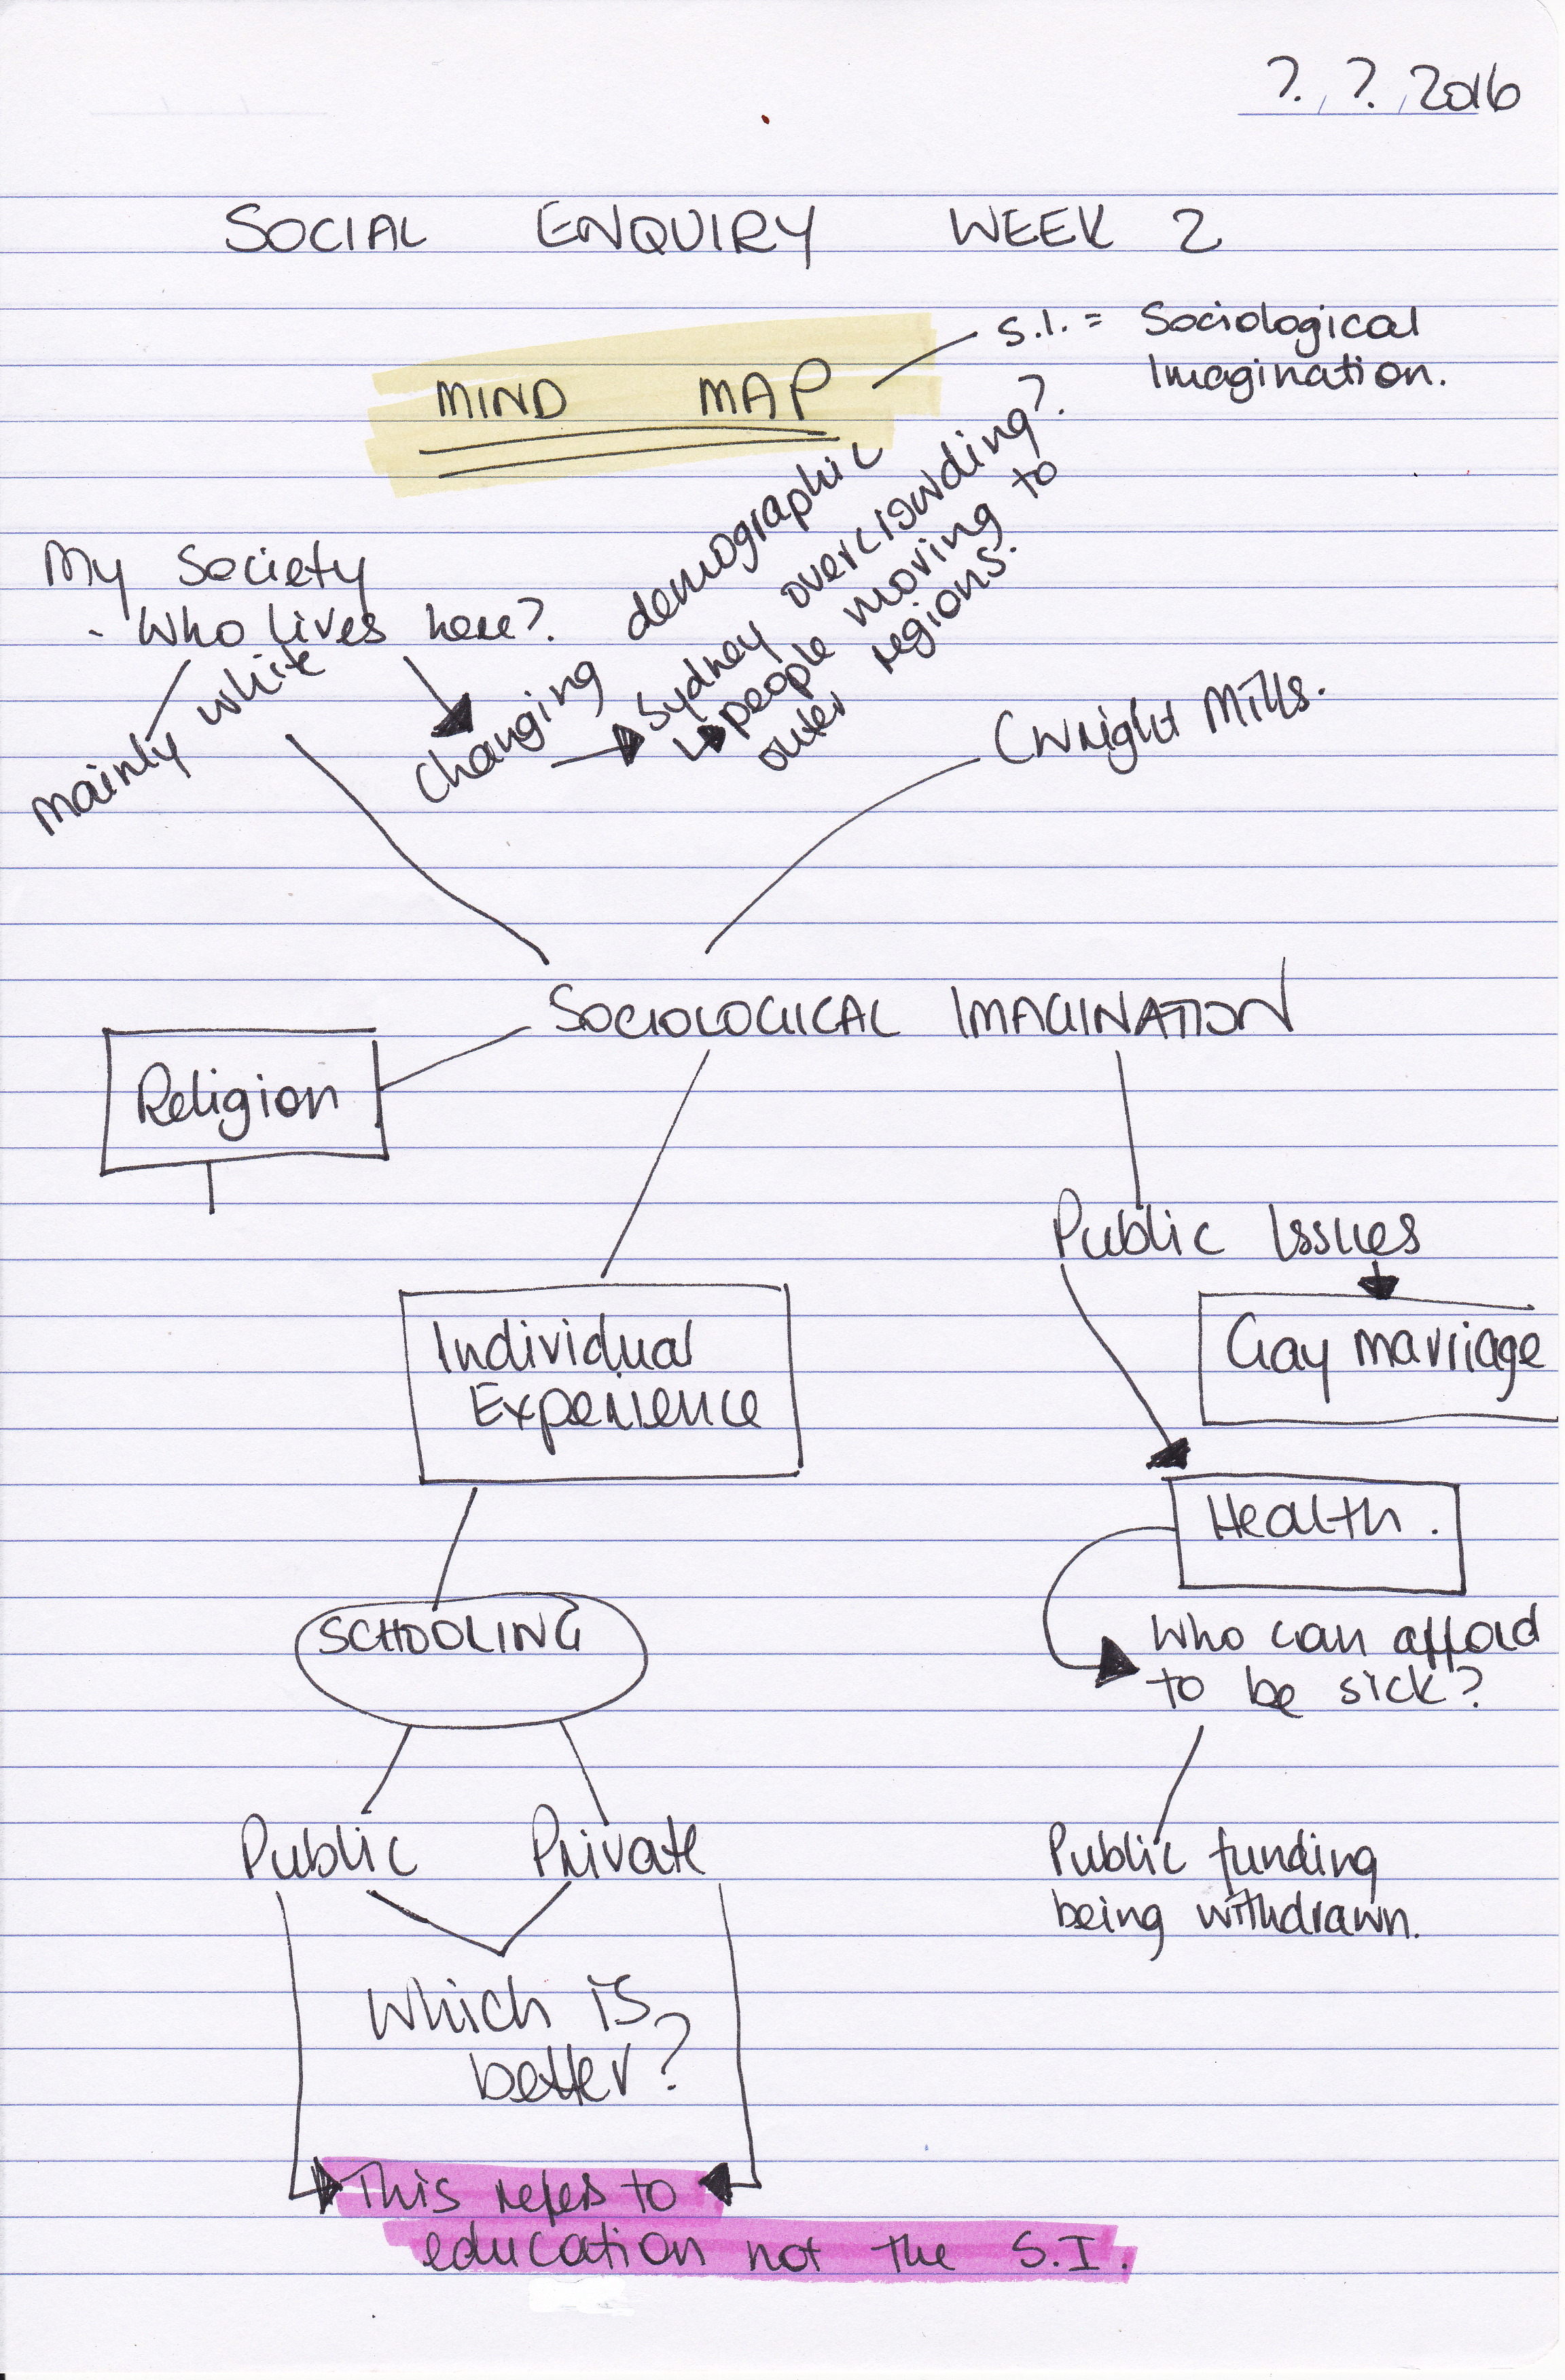 ?. ?. 2016
SOCIAL ENQUIRY WEEK 2
MIND MAP
S.I. = Sociological
Imagination.
My Society
- Who lives here?.
mainly white
Changing demographic
Sydney overcrowding?.
people moving to
outer regions.
C Wright Mills.
SOCIOLOGICAL IMAGINATION
Religion
Individual
Experience
Public Issues
Gay marriage
Health.
Who can afford
to be sick?
Public funding
being withdrawn.
SCHOOLING
Public Private
Which is
better?
This refers to
education not the S.I.